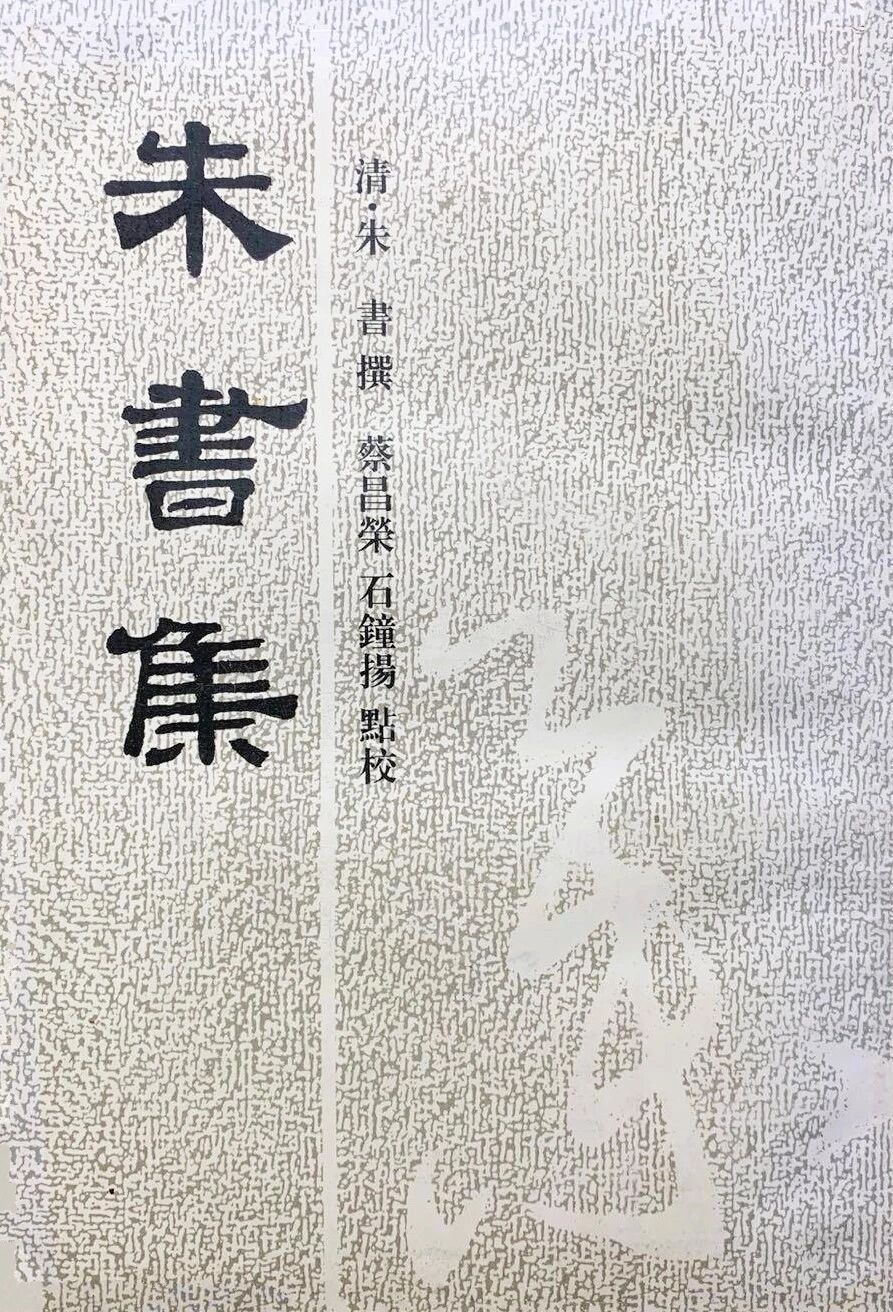 朱書集
清·朱 書 撰 蔡昌榮 石鐘揚 點校